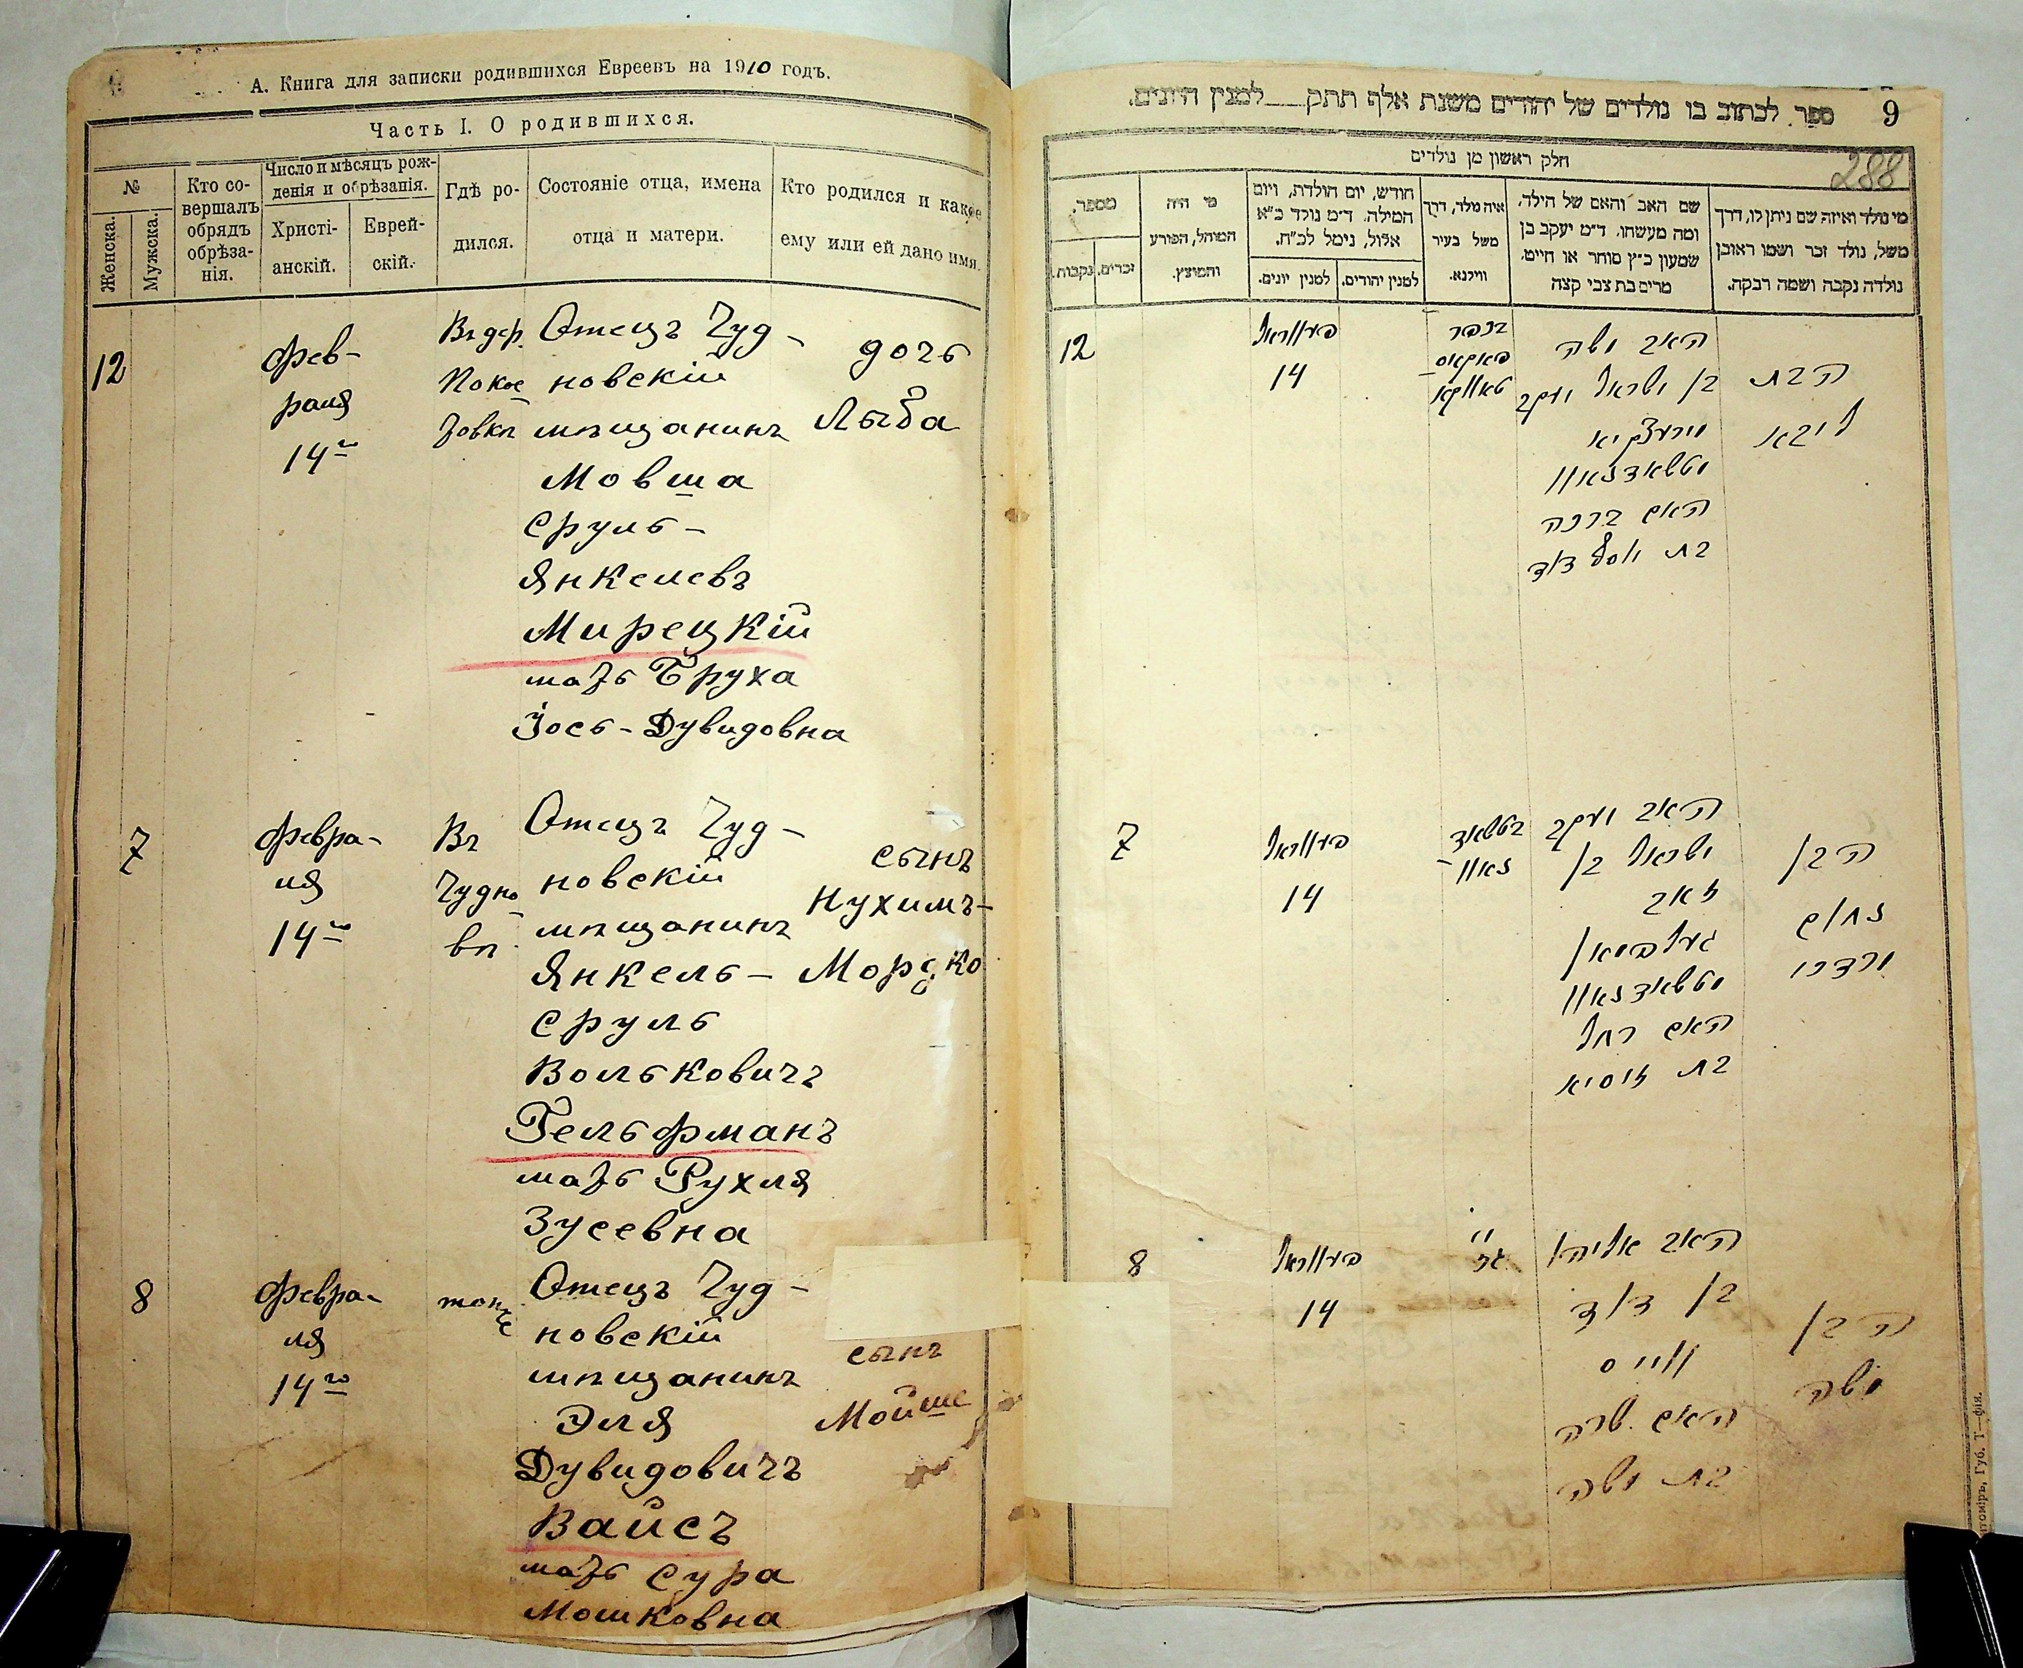 А. Книга для записки родившихся Евреевъ на 1910 годъ.
Часть I. О родившихся.
№
Женска.
Мужска.
Кто со-
вершалъ
обрядъ
обрѣза-
нія.
Число и мѣсяцъ рож-
денія и обрѣзанія.
Христі-
анскій.
Еврей-
скій.
Гдѣ ро-
дился.
Состояніе отца, имена
отца и матери.
Кто родился и какое
ему или ей дано имя.
12
Фев-
раля
14го
Въ дер.
Отецъ Чуд-
новскій
мѣщанинъ
Мовша
Сруль-
Янкелевъ
Мирецкій
мать Бруха
Іось-Дувидовна
дочь
Лыба
7
Февра-
ля
14го
Въ
Чудно
вѣ
Отецъ Чуд-
новскій
мѣщанинъ
Янкель-
Сруль
Вольковичъ
Гельфманъ
мать Рухля
Зусевна
сынъ
Нухимъ-
Мордко
8
Февра-
ля
14го
тоже
Отецъ Чуд-
новскій
мѣщанинъ
Эля
Дувидовичъ
Вайсъ
мать Сура
Мошковна
сынъ
Мойше
ספר לכתוב בו נולדים של יהודים משנת אלף תתק למנין היונים.
9
288
חלק ראשון מן נולדים
מי נולד ואיזה שם ניתן לו, דרך
משל, נולד זכר ושמו ראובן
נולדה נקבה ושמה רבקה.
שם האב והאם של הילד,
ומה מעשהו. ד״מ יעקב בן
שמעון כ״ץ סוחר או חייט.
מרים בת צבי קצה
איה מלד, דרך
משל בעיר
ווילנא.
חודש, יום הולדת, ויום
המילה. ד״מ נולד כ״א
אלול, נימל לכ״ח.
למנין יהודים.
למנין יונים.
מי היה
המוהל, הפורע
והמוצץ.
מספר.
זכרים.
נקבות.
12
פעוואראל
14
האב משה
בן ישראל יעקב
האם ברכה
בת יוסף דוד
הבת
ליבא
7
פעווראל
14
האב יעקב
ישראל בן
זאב
געלפמאן
האם רחל
בת זוסיא
הבן
נחום
מרדכי
8
פעווראל
14
האב אליהו
בן דוד
ווייס
האם שרה
בת משה
הבן
משה